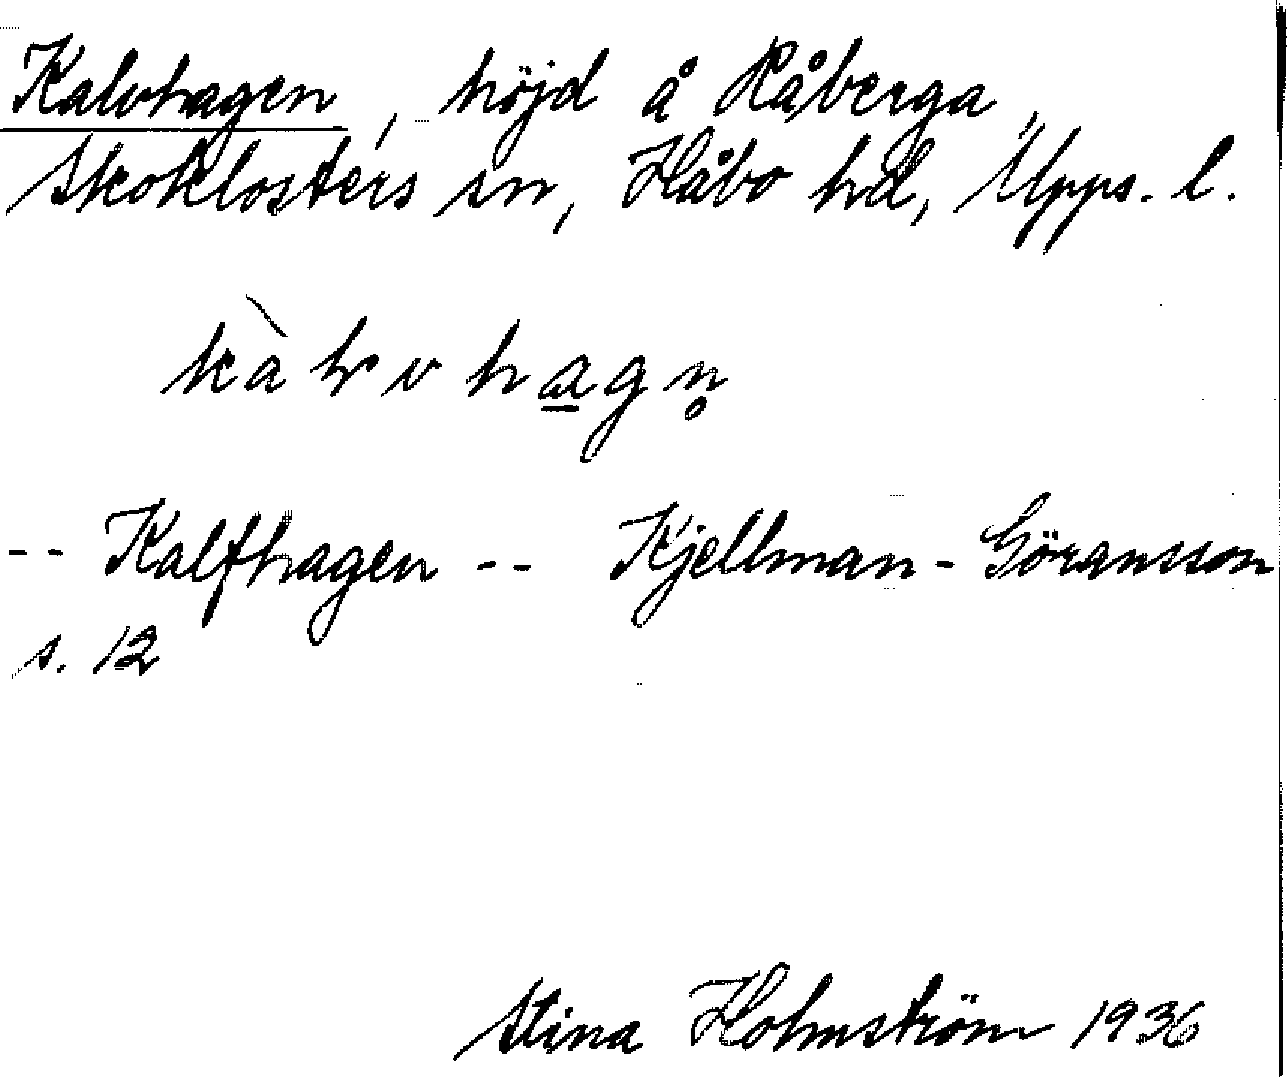 Kalvhagen, höjd å Råberga,
Skoklosters sn, Håbo hd, Upps. l.
-- Kalfhagen -- Kjellman-Göransson
s. 12
Stina Holmström 1936